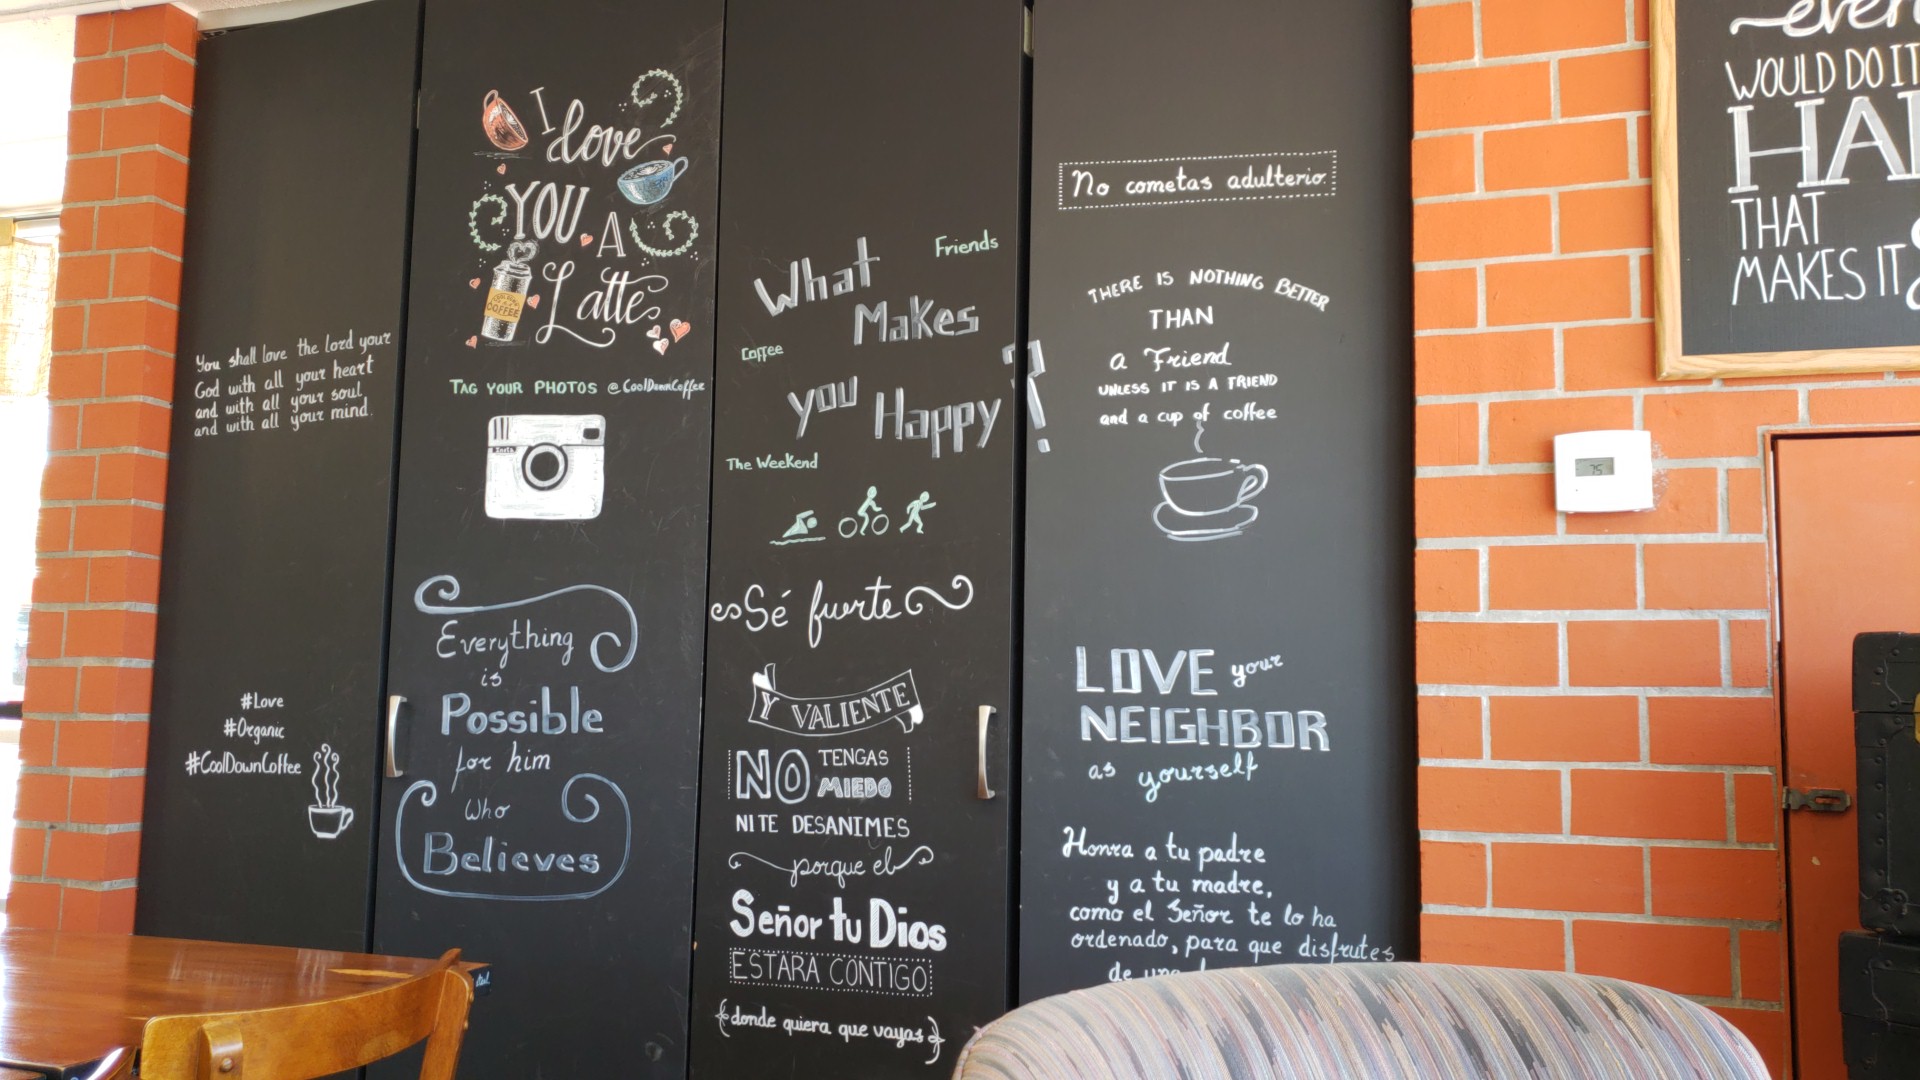 You shall love the lord your
God with all your heart
and with all your soul
and with all your mind.
#Love
#Organic
#CoolDownCoffee
I love
YOU. A
Latte
COFFEE
TAG YOUR PHOTOS @CoolDownCoffee
Insta
Everything
is
Possible
for him
Who
Believes
Friends
What
Makes
Coffee
you Happy?
The Weekend
Sé fuerte
Y VALIENTE
NO TENGAS
MIEDO
NI TE DESANIMES
porque el
Señor tu Dios
ESTARA CONTIGO
donde quiera que vayas
No cometas adulterio.
THERE IS NOTHING BETTER
THAN
a Friend
UNLESS IT IS A FRIEND
and a cup of coffee
LOVE your
NEIGHBOR
as yourself
Honra a tu padre
y a tu madre,
como el Señor te lo ha
ordenado, para que disfrutes
de una
WOULD DO IT
THAT
MAKES IT
75